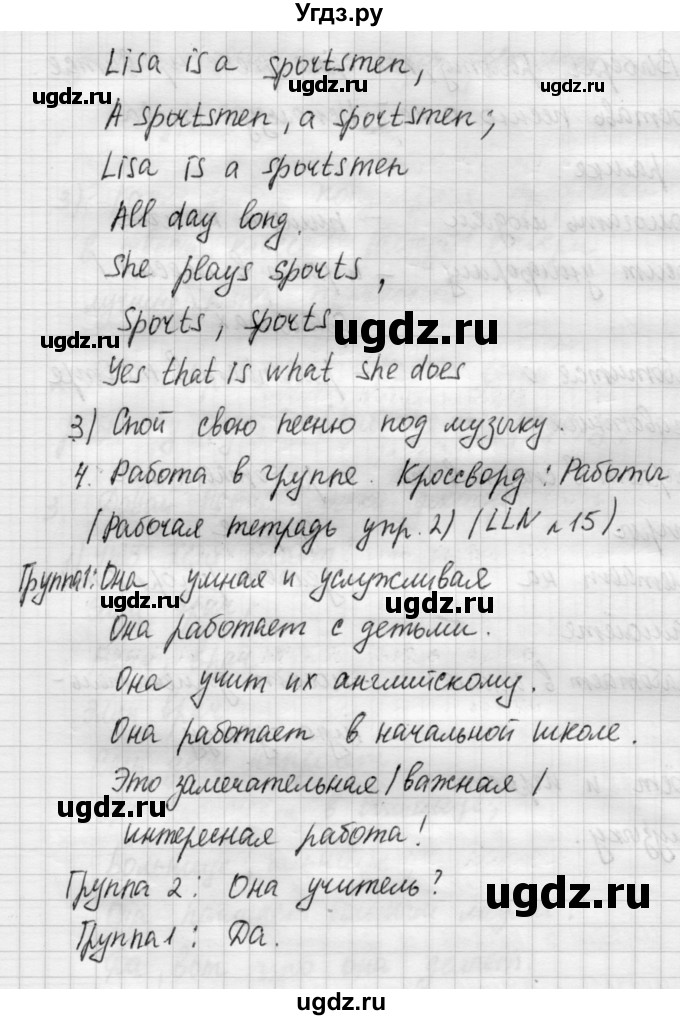 Угдз.ру
Lisa is a sportsmen,
A sportsmen, a sportsmen;
Lisa is a sportsmen
All day long.
She plays sports,
Sports, sports
Yes that is what she does
3) Спой свою песню под музыку.
4. Работа в группе. Кроссворд: Работы
(Рабочая тетрадь упр. 2) (LLN №15)
Группа1: Она умная и услужливая
Она работает с детьми.
Она учит их английскому.
Она работает в начальной школе.
Это замечательная/важная/
интересная работа!
Группа 2: Она учитель?
Группа1: Да.
ugdz.ru